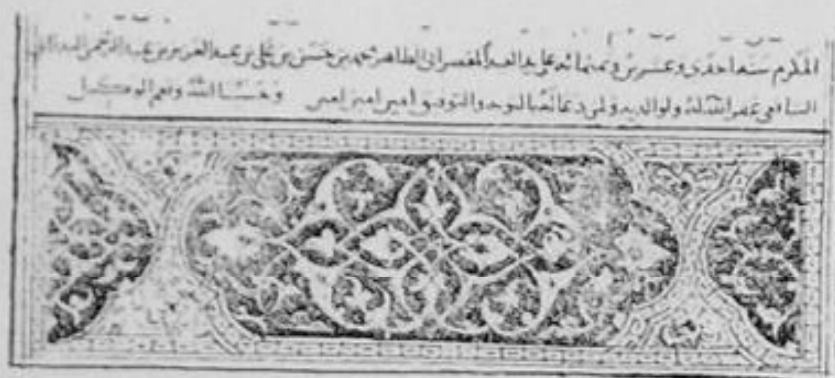 المكرم سنه احدى وعشرين وثمنمائه على يد العبد المقصر ابى الطاهر محمد بن حسن بن على بن عبد العزيز بن عبد الرحمن
الشافعى غفر الله له ولوالديه ولمن دعا والتوفيق امين امين امين وحسبنا الله ونعم الوكيل